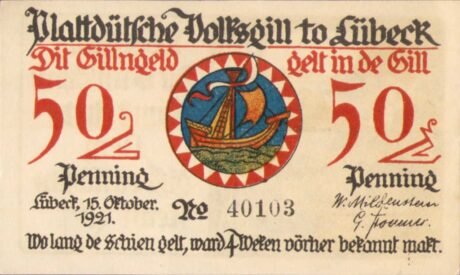 Plattdütsche Volksgill to Lübeck
Dit Gillngeld gelt in de Gill
50 50
Penning Penning
Lübeck, 15. Oktober.
1921.
No 40103
W. Mildenstein
Wo lang de Schien gelt, ward 4 Weken vörher bekannt makt.